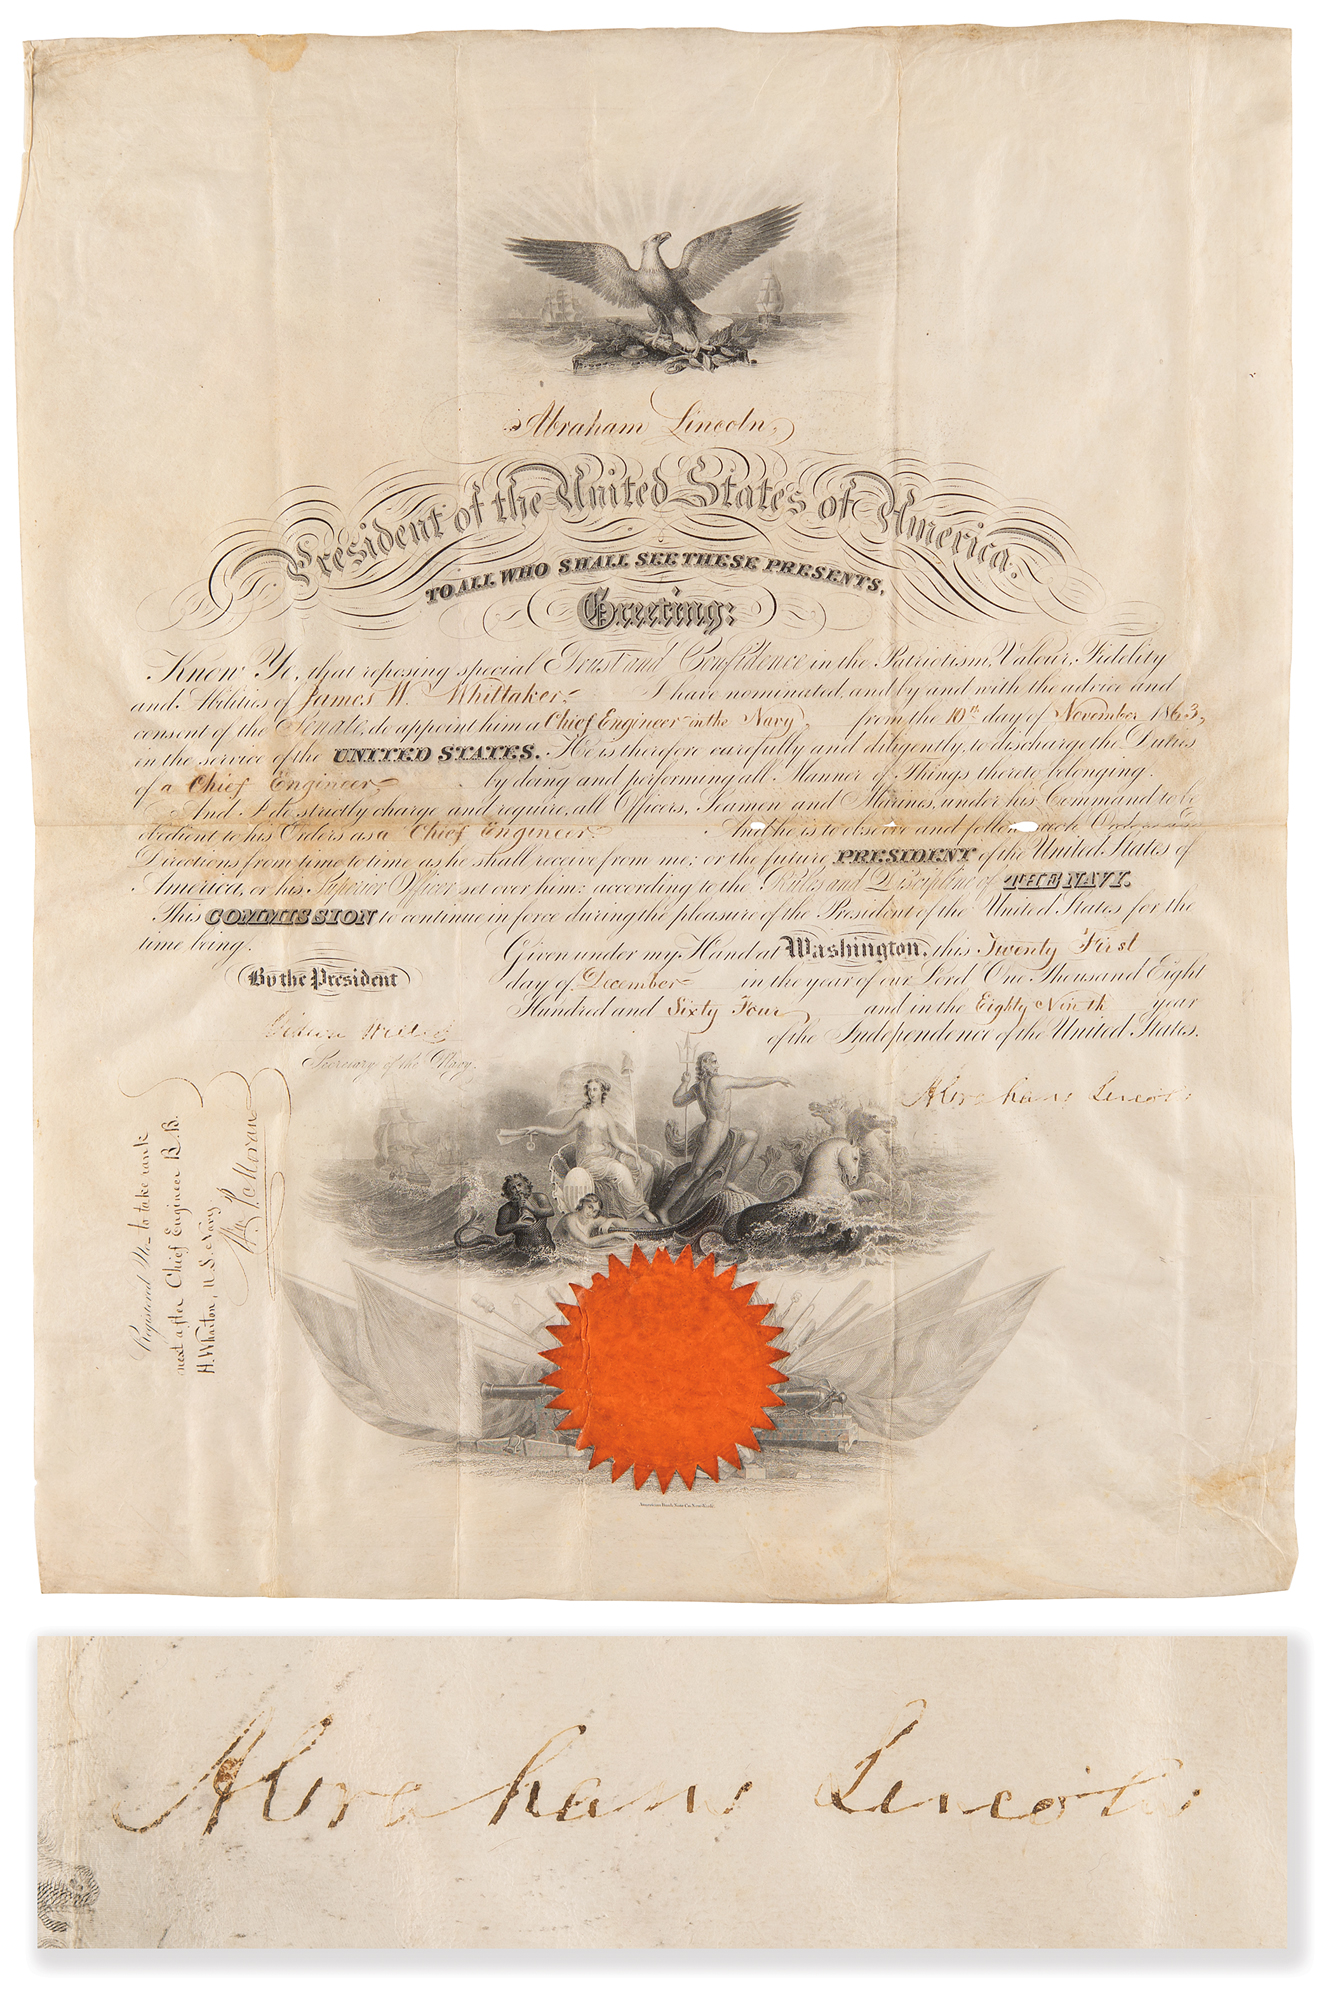 Abraham Lincoln,
President of the United States of America.
TO ALL WHO SHALL SEE THESE PRESENTS,
Greeting:
Know Ye, that reposing special Trust and Confidence in the Patriotism, Valour, Fidelity
and Abilities of James W. Whittaker I have nominated, and by and with the advice and
consent of the Senate, do appoint him a Chief Engineer in the Navy from the 10th day of November 1863,
in the service of the UNITED STATES. He is therefore carefully and diligently, to discharge the Duties
of a Chief Engineer by doing and performing all Manner of Things thereto belonging.
And I do strictly charge and require, all Officers, Seamen and Marines, under his Command to be
obedient to his Orders as a Chief Engineer. And he is to observe and follow such Orders and
Directions from time to time as he shall receive from me: or the future PRESIDENT of the United States of
America, or his Superior Officer set over him: according to the Rules and Discipline of THE NAVY.
This COMMISSION to continue in force during the pleasure of the President of the United States for the
time being.
Given under my Hand at Washington, this Twenty First
day of December in the year of our Lord One Thousand Eight
Hundred and Sixty Four and in the Eighty Ninth year
of the Independence of the United States.
By the President
Gideon Welles
Secretary of the Navy.
Abraham Lincoln
Registered No. to take rank
next after Chief Engineer B.B.
H. Wharton, U.S. Navy.
Wm P. Moran
American Bank Note Co. New York.
Abraham Lincoln